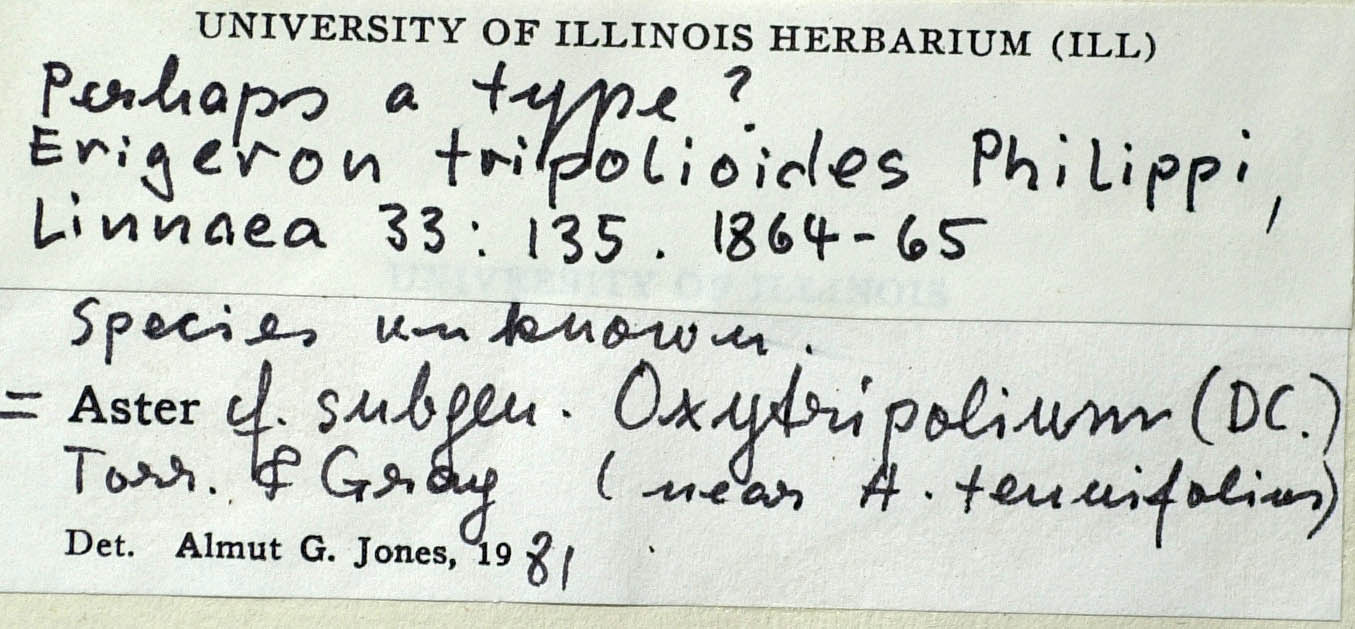 UNIVERSITY OF ILLINOIS HERBARIUM (ILL)
Perhaps a type?
Erigeron tripolioides Philippi,
Linnaea 33: 135. 1864-65
UNIVERSITY OF ILLINOIS
Species unknown.
= Aster cf. subgen. Oxytripolium (DC.)
Torr. & Gray (near A. tenuifolius)
Det. Almut G. Jones, 1981